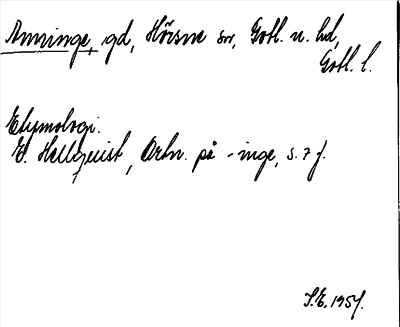 Anninge, gd, Hörsne sn, Gotl. n. hd,
Gotl. l.
Etymologi.
E. Hellquist, Ortn. på -inge, s. 7 f.
S.E. 1951.